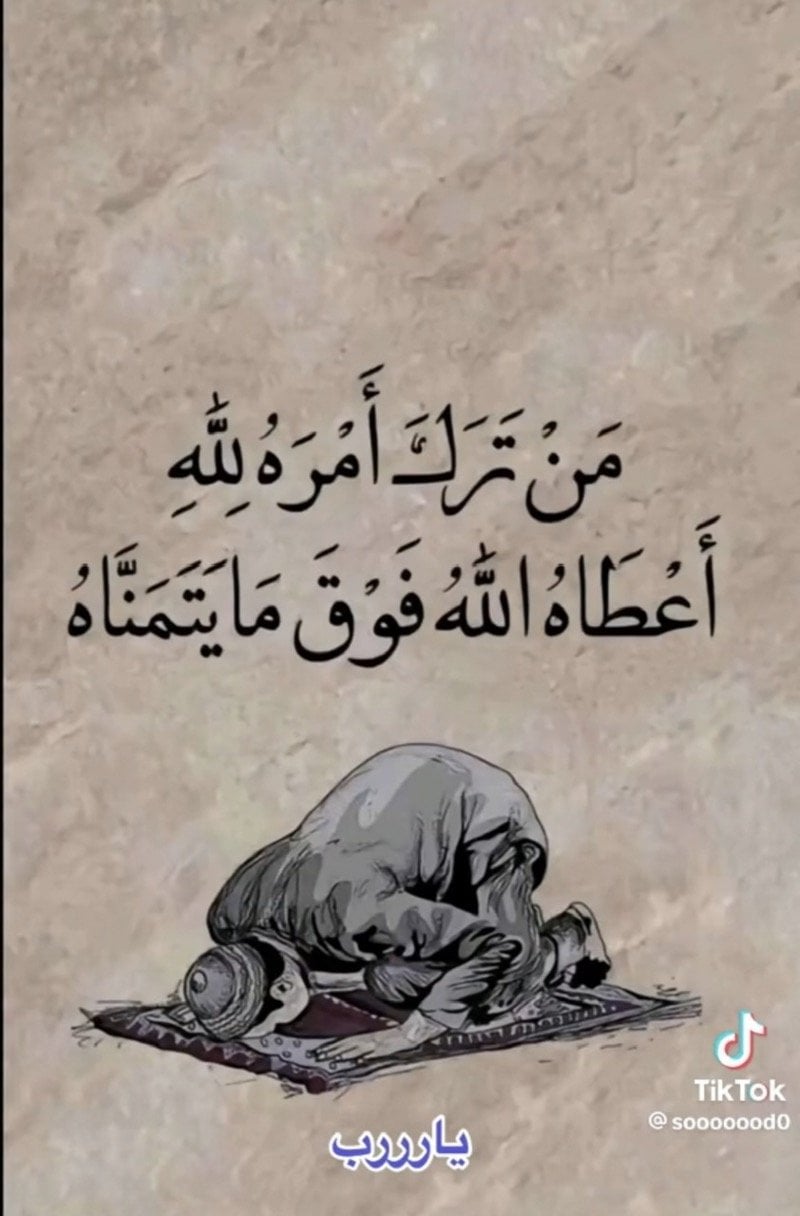 مَنْ تَرَكَ أَمْرَهُ لِلّٰهِ
أَعْطَاهُ اللّٰهُ فَوْقَ مَا يَتَمَنَّاهُ
TikTok
@sooooood0
ياررررب